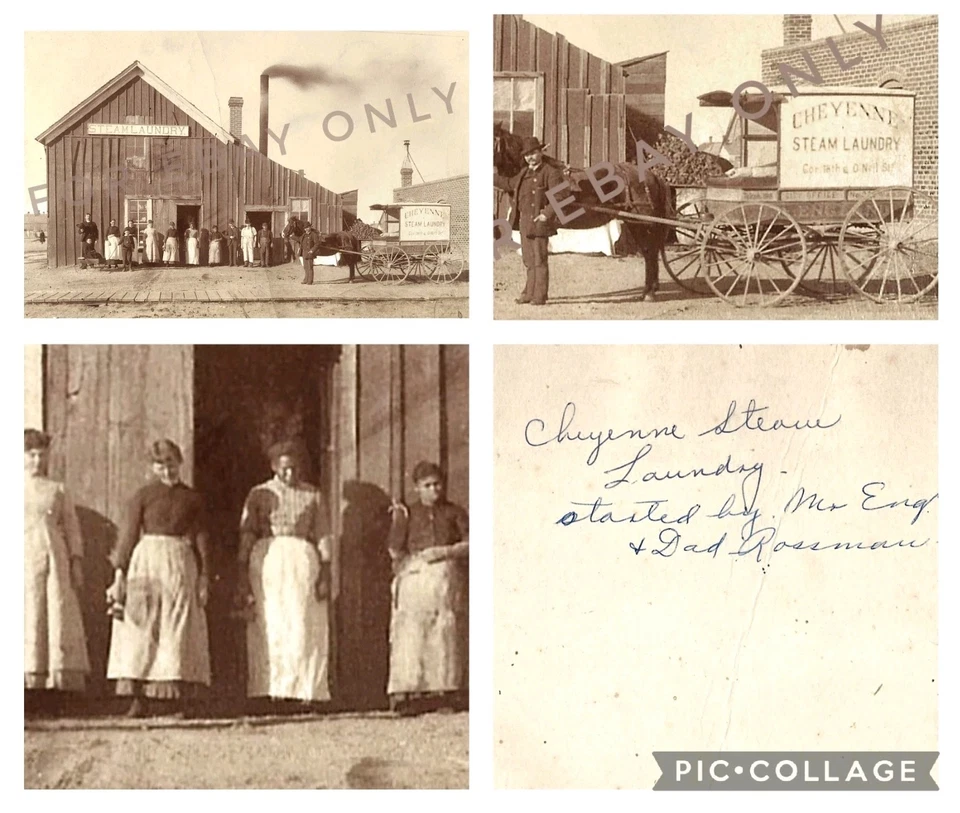 STEAM LAUNDRY
CHEYENNE
STEAM LAUNDRY
FOR EBAY ONLY
CHEYENNE
STEAM LAUNDRY
FOR EBAY ONLY
Cheyenne Steam
Laundry -
started by Mr Eng
& Dad Rossman
PIC•COLLAGE